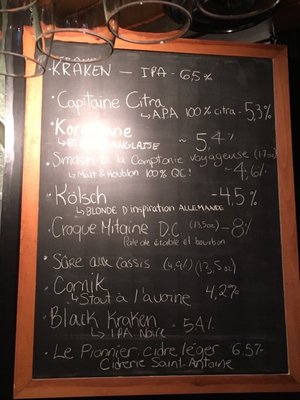 • KRAKEN — IPA - 6.5%
• Capitaine Citra
↳ APA 100% citra - 5,3%
ANGLAISE ~ 5.4%
• Smash à la Comptonie voyageuse (17oz)
↳ Malt & Houblon 100% QC! ~ 4,6%
• Kölsch - 4,5%
↳ BLONDE D'inspiration ALLEMANDE
• Croque Mitaine D.C (13,5oz) - 8%
Pale de érable et bourbon
• Sûre aux cassis (4,9%) (13,5oz)
• Cornik 4,2%
↳ Stout à l'avoine
• Black Kraken 5.4%
↳ IPA Noire
• Le Pionnier cidre léger 6.5%
Cidrerie Saint-Antoine